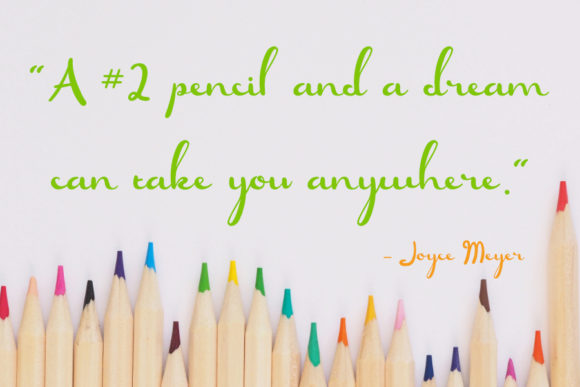 “A #2 pencil and a dream
can take you anywhere.“
- Joyce Meyer